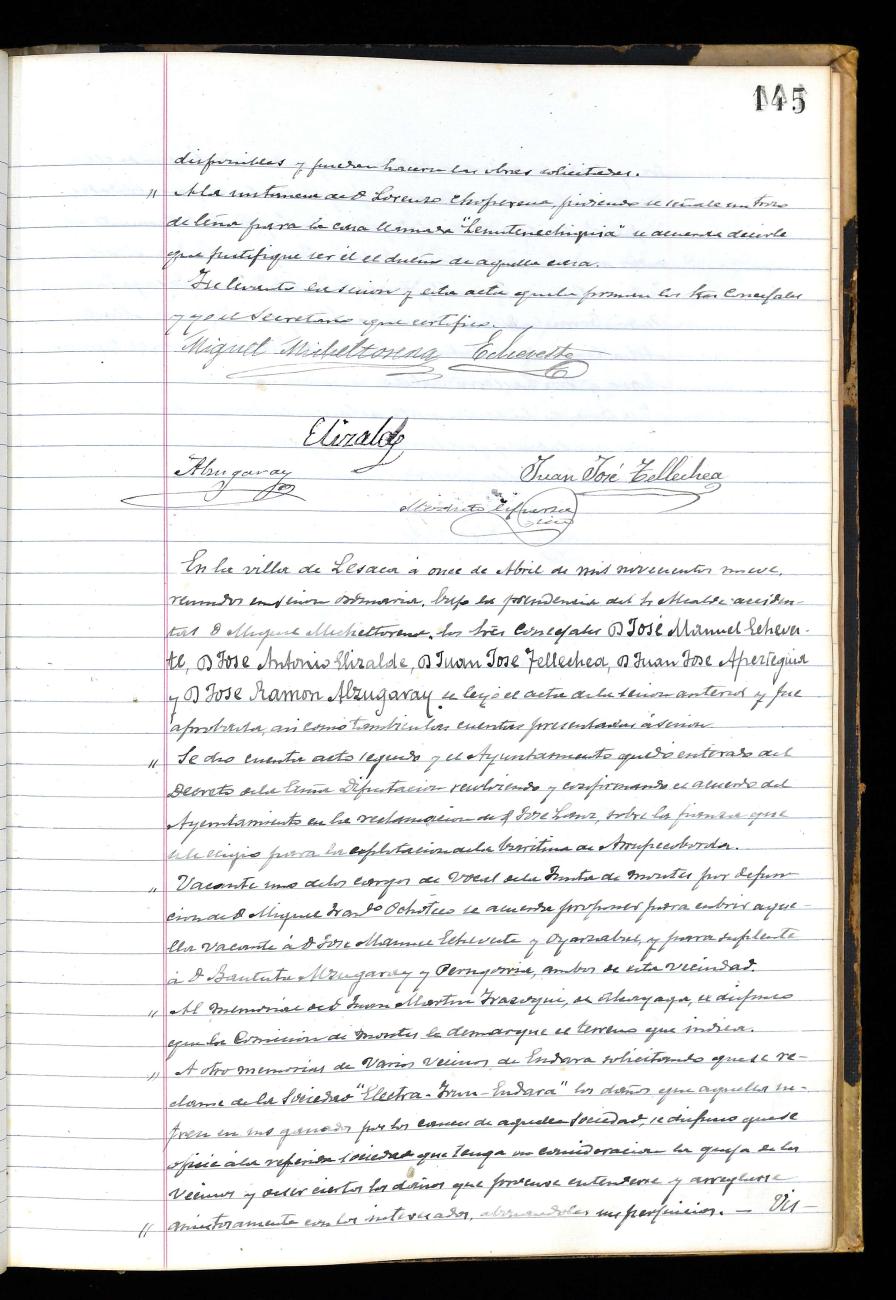 145
disponibles y puedan hacerse las obras solicitadas.
" A la instancia de D Lorenzo Choperena pidiendo se señale un trozo
de leña para la casa llamada se acuerda decirle
que justifique ser él el dueño de aquella casa.
Se levanta la sesión y esta acta que la firman los Sres Concejales
y yo el Secretario que certifico.
Miguel Micheltorena Echeveste
Elizalde
Alzugaray Juan José Tellechea
En la villa de Lesaca á once de Abril de mil novecientos nueve,
reunidos en sesion ordinaria, bajo la presidencia del Sr Alcalde acciden-
tal D Miguel Micheltorena, los Sres Concejales D José Manuel Echeves-
te, D Jose Antonio Elizalde, D Juan Jose Tellechea, D Juan Jose Aperteguia
y D Jose Ramon Alzugaray se leyó el acta de la sesion anterior y fue
aprobada, asi como tambien las cuentas presentadas á sesion
" Se dio cuenta acto seguido y el Ayuntamiento quedó enterado del
Decreto de la Exma Diputacion resolviendo y confirmando el acuerdo del
Ayuntamiento en la reclamacion de D Jose Lanz, sobre la fianza que
se le exigio para la explotacion de la baritina de
" Vacante uno de los cargos de Vocal de la Junta de montes por defun-
cion de D Miguel Ochoteco se acuerda proponer para cubrir aque-
lla vacante á D Jose Manuel Echeveste y Oyarzabal, y para suplente
á D Bautista Alzugaray y Perugorria, ambos de esta vecindad.
" Al memorial de D Juan Martin Irazoqui, de Alcayaga, se dispuso
que la Comision de montes le demarque el terreno que indica.
" A otro memorial de varios vecinos de Endara solicitando que se re-
clame de la Sociedad "Electra-Irun-Endara" los daños que aquellos su-
fren en sus ganados por los canales de aquella Sociedad, se dispuso que se
oficie á la referida sociedad que tenga en consideracion la queja de los
vecinos y de ser ciertos los daños que procure entenderse y arreglarse
" amistosamente con los interesados, abonandoles sus perjuicios. — Vis—